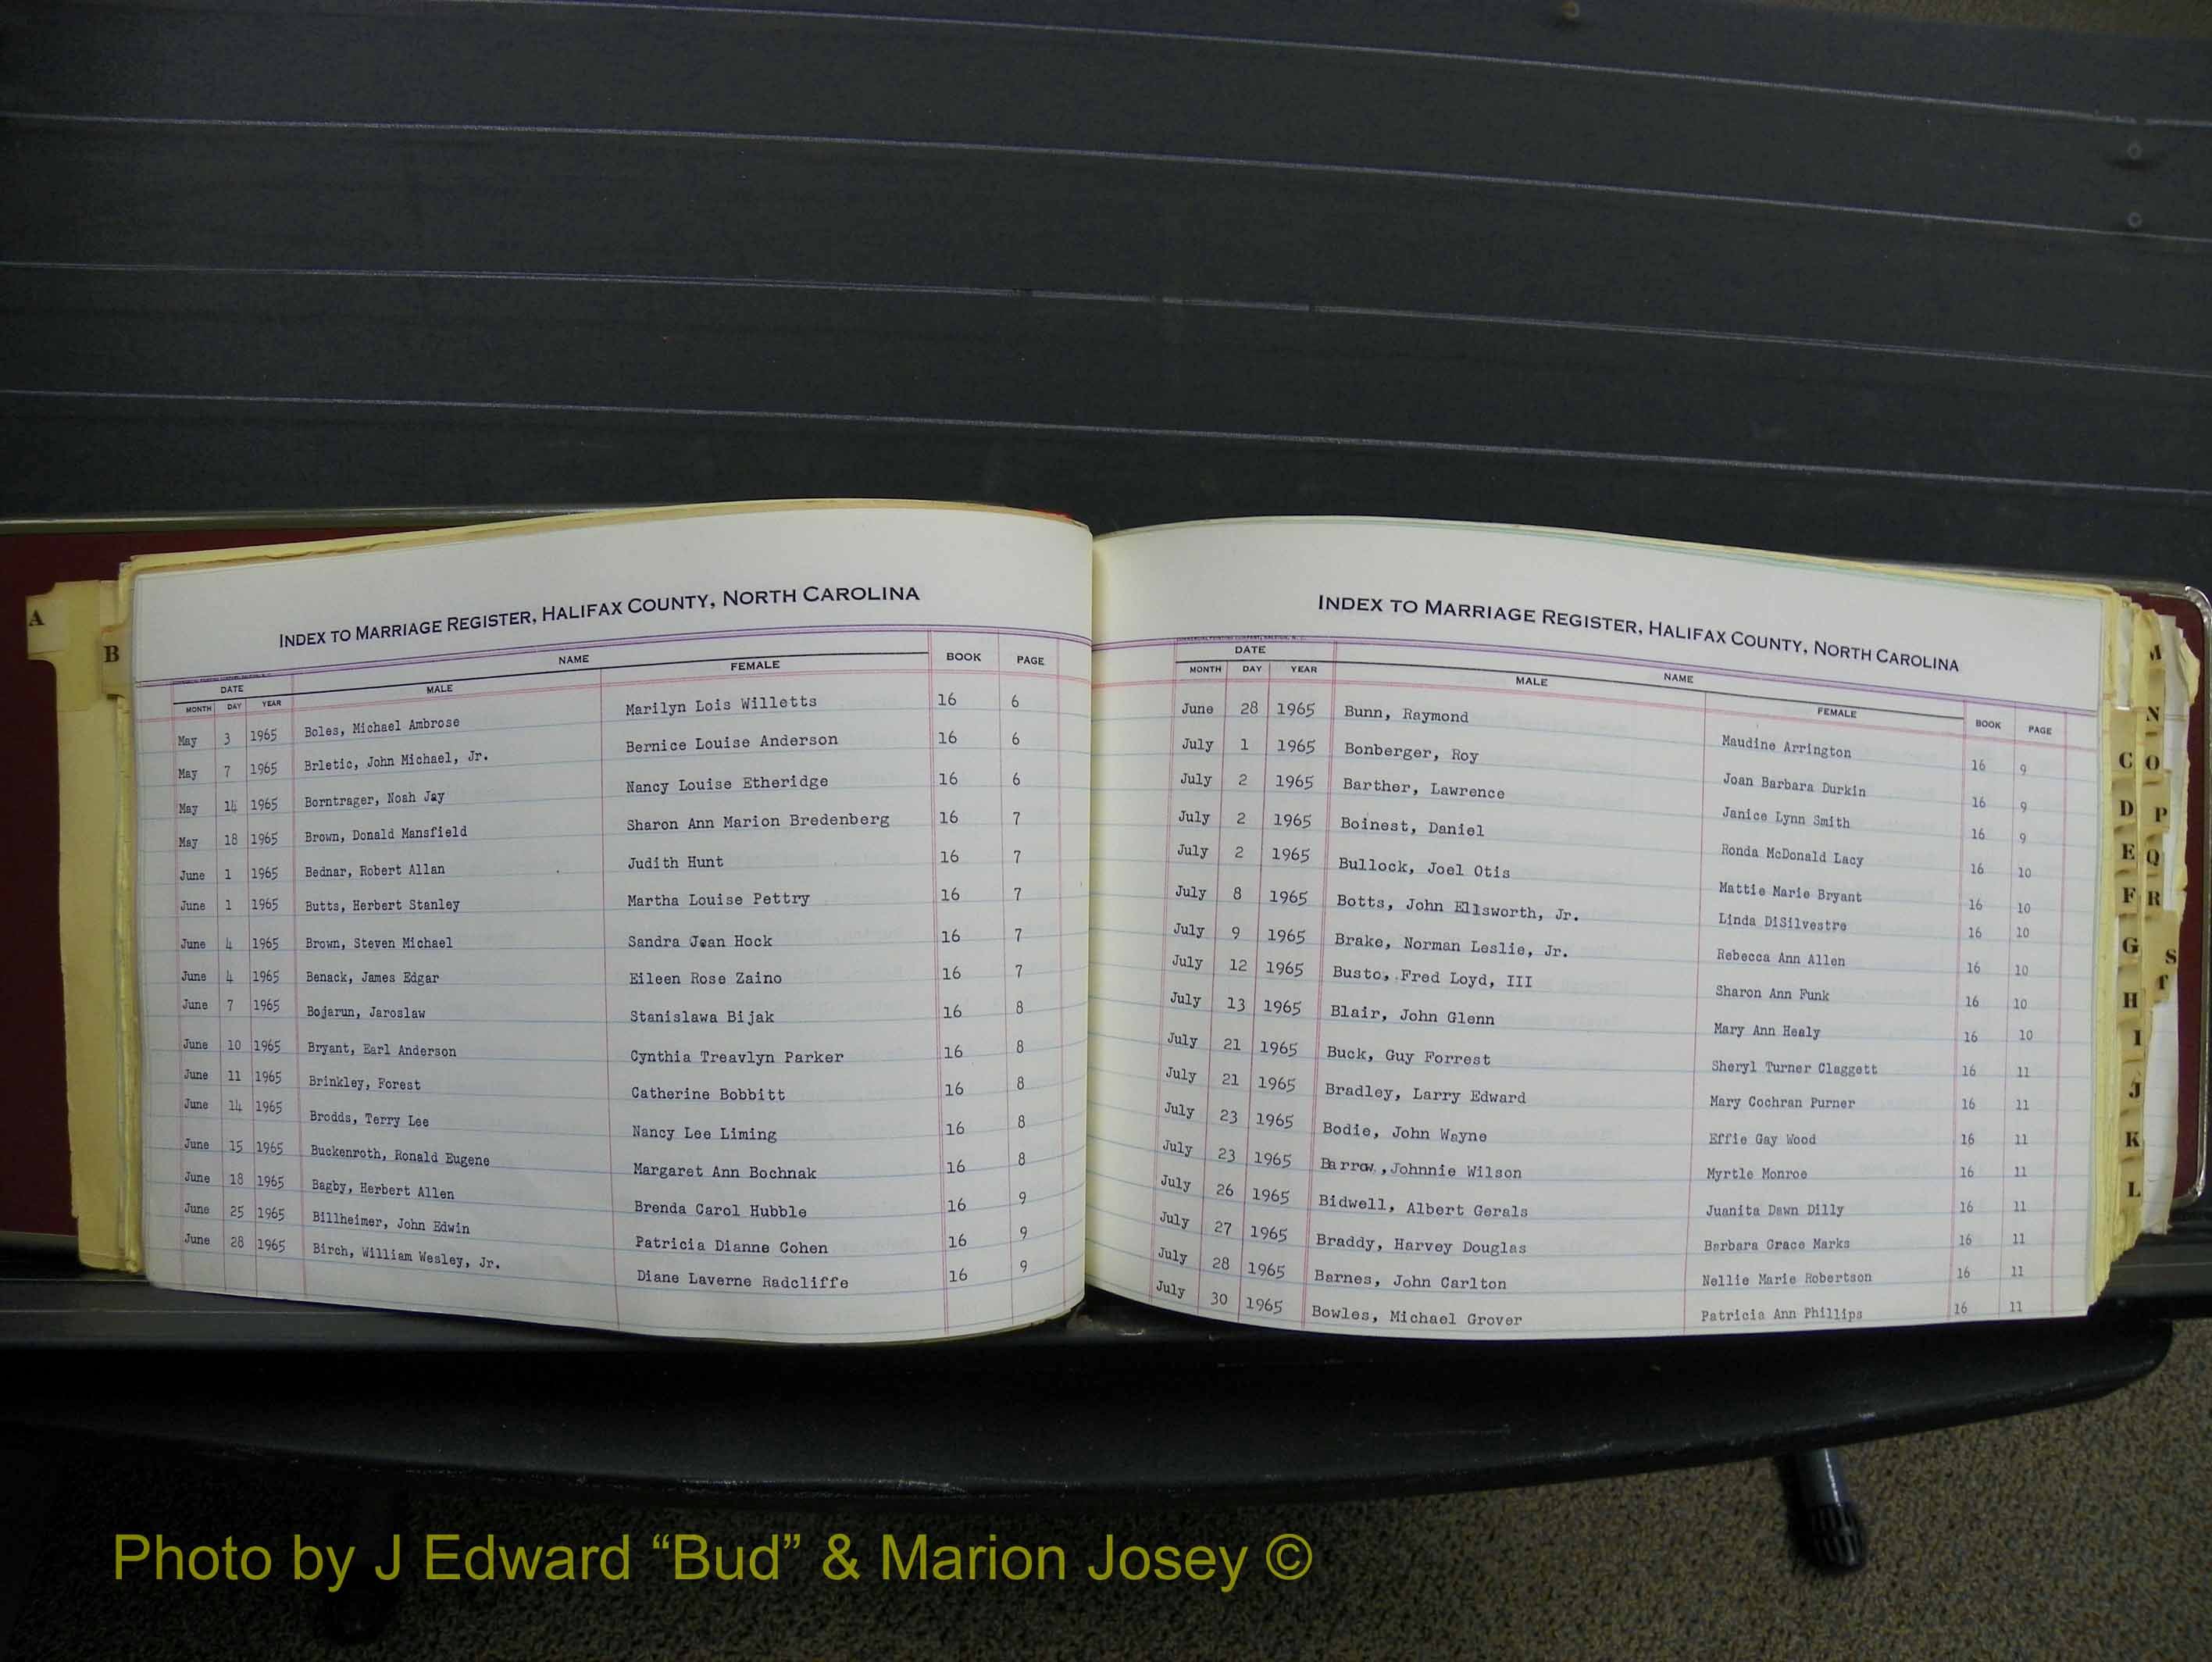 A
B
INDEX TO MARRIAGE REGISTER, HALIFAX COUNTY, NORTH CAROLINA
DATE NAME BOOK PAGE
MONTH DAY YEAR MALE FEMALE
May 3 1965 Boles, Michael Ambrose Marilyn Lois Willetts 16 6
May 7 1965 Brletic, John Michael, Jr. Bernice Louise Anderson 16 6
May 14 1965 Borntrager, Noah Jay Nancy Louise Etheridge 16 6
May 18 1965 Brown, Donald Mansfield Sharon Ann Marion Bredenberg 16 7
June 1 1965 Bednar, Robert Allan Judith Hunt 16 7
June 1 1965 Butts, Herbert Stanley Martha Louise Pettry 16 7
June 4 1965 Brown, Steven Michael Sandra Jean Hock 16 7
June 4 1965 Benack, James Edgar Eileen Rose Zaino 16 7
June 7 1965 Bojarun, Jaroslaw Stanislawa Bijak 16 8
June 10 1965 Bryant, Earl Anderson Cynthia Treavlyn Parker 16 8
June 11 1965 Brinkley, Forest Catherine Bobbitt 16 8
June 14 1965 Brodds, Terry Lee Nancy Lee Liming 16 8
June 15 1965 Buckenroth, Ronald Eugene Margaret Ann Bochnak 16 8
June 18 1965 Bagby, Herbert Allen Brenda Carol Hubble 16 9
June 25 1965 Billheimer, John Edwin Patricia Dianne Cohen 16 9
June 28 1965 Birch, William Wesley, Jr. Diane Laverne Radcliffe 16 9
INDEX TO MARRIAGE REGISTER, HALIFAX COUNTY, NORTH CAROLINA
DATE NAME BOOK PAGE
MONTH DAY YEAR MALE FEMALE
June 28 1965 Bunn, Raymond Maudine Arrington 16 9
July 1 1965 Bonberger, Roy Joan Barbara Durkin 16 9
July 2 1965 Barther, Lawrence Janice Lynn Smith 16 9
July 2 1965 Boinest, Daniel Ronda McDonald Lacy 16 10
July 2 1965 Bullock, Joel Otis Mattie Marie Bryant 16 10
July 8 1965 Botts, John Ellsworth, Jr. Linda DiSilvestre 16 10
July 9 1965 Brake, Norman Leslie, Jr. Rebecca Ann Allen 16 10
July 12 1965 Busto, Fred Loyd, III Sharon Ann Funk 16 10
July 13 1965 Blair, John Glenn Mary Ann Healy 16 10
July 21 1965 Buck, Guy Forrest Sheryl Turner Claggett 16 11
July 21 1965 Bradley, Larry Edward Mary Cochran Purner 16 11
July 23 1965 Bodie, John Wayne Effie Gay Wood 16 11
July 23 1965 Barrow, Johnnie Wilson Myrtle Monroe 16 11
July 26 1965 Bidwell, Albert Gerals Juanita Dawn Dilly 16 11
July 27 1965 Braddy, Harvey Douglas Barbara Grace Marks 16 11
July 28 1965 Barnes, John Carlton Nellie Marie Robertson 16 11
July 30 1965 Bowles, Michael Grover Patricia Ann Phillips 16 11
C
D
E
F
G
H
I
J
K
L
M
N
O
P
Q
R
S
T
Photo by J Edward “Bud” & Marion Josey ©